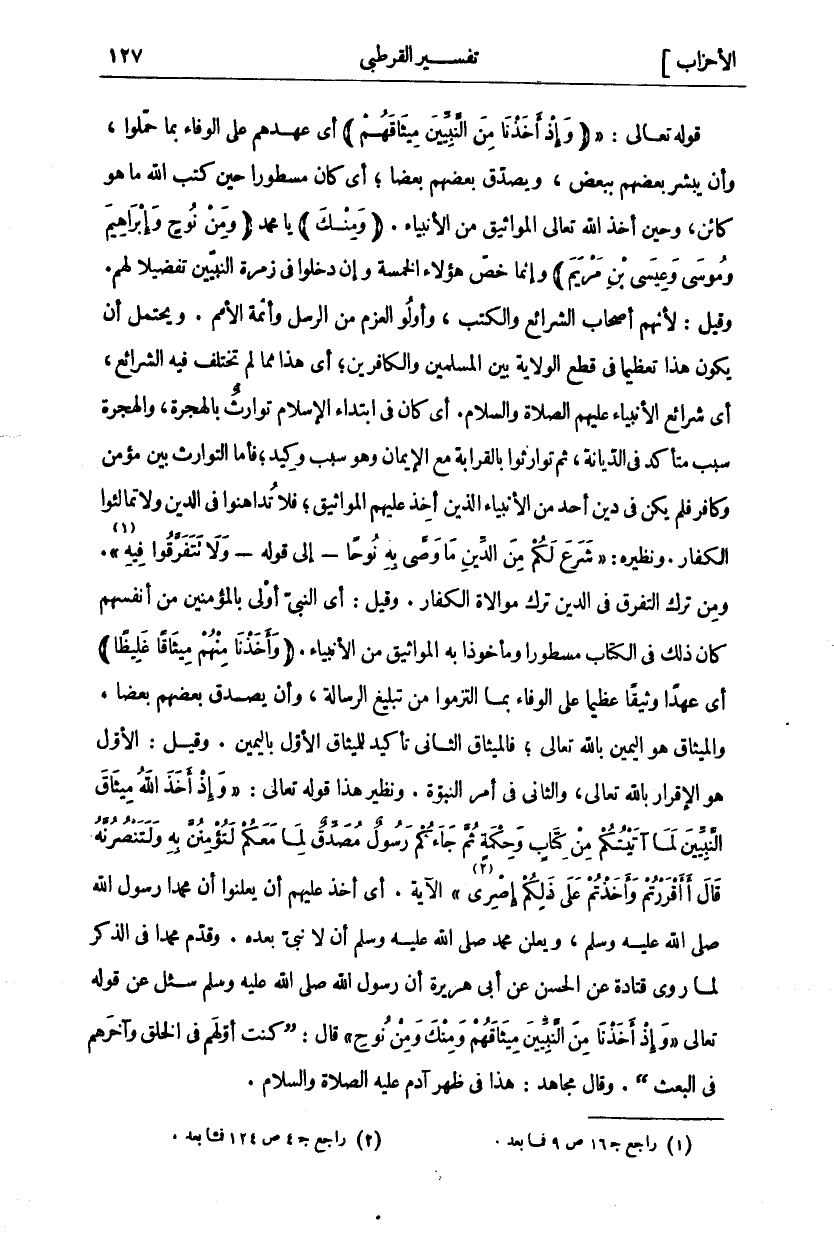 الأحزاب ] تفسير القرطبى ١٢٧
قوله تعالى : « ( وَإِذْ أَخَذْنَا مِنَ النَّبِيِّينَ مِيثَاقَهُمْ ) أى عهدهم على الوفاء بما حمّلوا ،
وأن يبشر بعضهم ببعض ، ويصدّق بعضهم بعضا ؛ أى كان مسطورا حين كتب الله ما هو
كائن، وحين أخذ الله تعالى المواثيق من الأنبياء . ( وَمِنْكَ ) يا محمد ( وَمِنْ نُوحٍ وَإِبْرَاهِيمَ
وَمُوسَى وَعِيسَى بْنِ مَرْيَمَ ) وإنما خصّ هؤلاء الخمسة وإن دخلوا فى زمرة النبيّين تفضيلا لهم.
وقيل : لأنهم أصحاب الشرائع والكتب ، وأولُو العزم من الرسل وأئمة الأمم . ويحتمل أن
يكون هذا تعظيما فى قطع الولاية بين المسلمين والكافرين؛ أى هذا مما لم تختلف فيه الشرائع ،
أى شرائع الأنبياء عليهم الصلاة والسلام. أى كان فى ابتداء الإسلام توارثٌ بالهجرة، والهجرة
سبب متأكد فى الديانة ، ثم توارثوا بالقرابة مع الإيمان وهو سبب وكيد ؛ فأما التوارث بين مؤمن
وكافر فلم يكن فى دين أحد من الأنبياء الذين أخِذ عليهم المواثيق؛ فلا تُداهنوا فى الدين ولا تمالئوا
الكفار . ونظيره: « شَرَعَ لَكُمْ مِنَ الدِّينِ مَا وَصَّى بِهِ نُوحًا – إلى قوله – وَلَا تَتَفَرَّقُوا فِيهِ (١) ».
ومِن ترك التفرق فى الدين ترك موالاة الكفار . وقيل : أى النبىّ أوْلى بالمؤمنين من أنفسهم
كان ذلك فى الكتاب مسطورا ومأخوذا به المواثيق من الأنبياء . ( وَأَخَذْنَا مِنْهُمْ مِيثَاقًا غَلِيظًا )
أى عهدًا وثيقًا عظيما على الوفاء بما التزموا من تبليغ الرسالة ، وأن يصدق بعضهم بعضا .
والميثاق هو اليمين بالله تعالى ؛ فالميثاق الثانى تأكيد للميثاق الأوّل باليمين . وقيل : الأوّل
هو الإقرار بالله تعالى، والثانى فى أمر النبوّة . ونظير هذا قوله تعالى : « وَإِذْ أَخَذَ اللهُ مِيثَاقَ
النَّبِيِّينَ لَمَا آتَيْتُكُمْ مِنْ كِتَابٍ وَحِكْمَةٍ ثُمَّ جَاءَكُمْ رَسُولٌ مُصَدِّقٌ لِمَا مَعَكُمْ لَتُؤْمِنُنَّ بِهِ وَلَتَنْصُرُنَّهُ
قَالَ أَأَقْرَرْتُمْ وَأَخَذْتُمْ عَلَى ذَلِكُمْ إِصْرِى (٢) » الآية . أى أخذ عليهم أن يعلنوا أن محمدا رسول الله
صلى الله عليه وسلم ، ويعلن محمد صلى الله عليه وسلم أن لا نبىّ بعده . وقدّم محمدا فى الذكر
لما روى قتادة عن الحسن عن أبى هريرة أن رسول الله صلى الله عليه وسلم سئل عن قوله
تعالى «وَإِذْ أَخَذْنَا مِنَ النَّبِيِّينَ مِيثَاقَهُمْ وَمِنْكَ وَمِنْ نُوحٍ» قال : "كنت أوّلَهم فى الخلق وآخرَهم
فى البعث" . وقال مجاهد : هذا فى ظهر آدم عليه الصلاة والسلام .
(١) راجع جـ ١٦ ص ٩ فما بعد . (٢) راجع جـ ٤ ص ١٢٤ فما بعد .